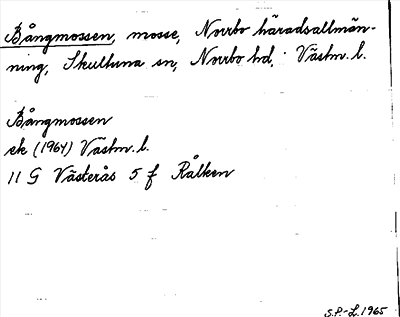 Bångmossen, mosse, Norrbo häradsallmän-
ning, Skultuna sn, Norrbo hd, Västm. l.
Bångmossen
ek (1964) Västm. l.
11 G Västerås 5 f Rålken
S.P.-L. 1965